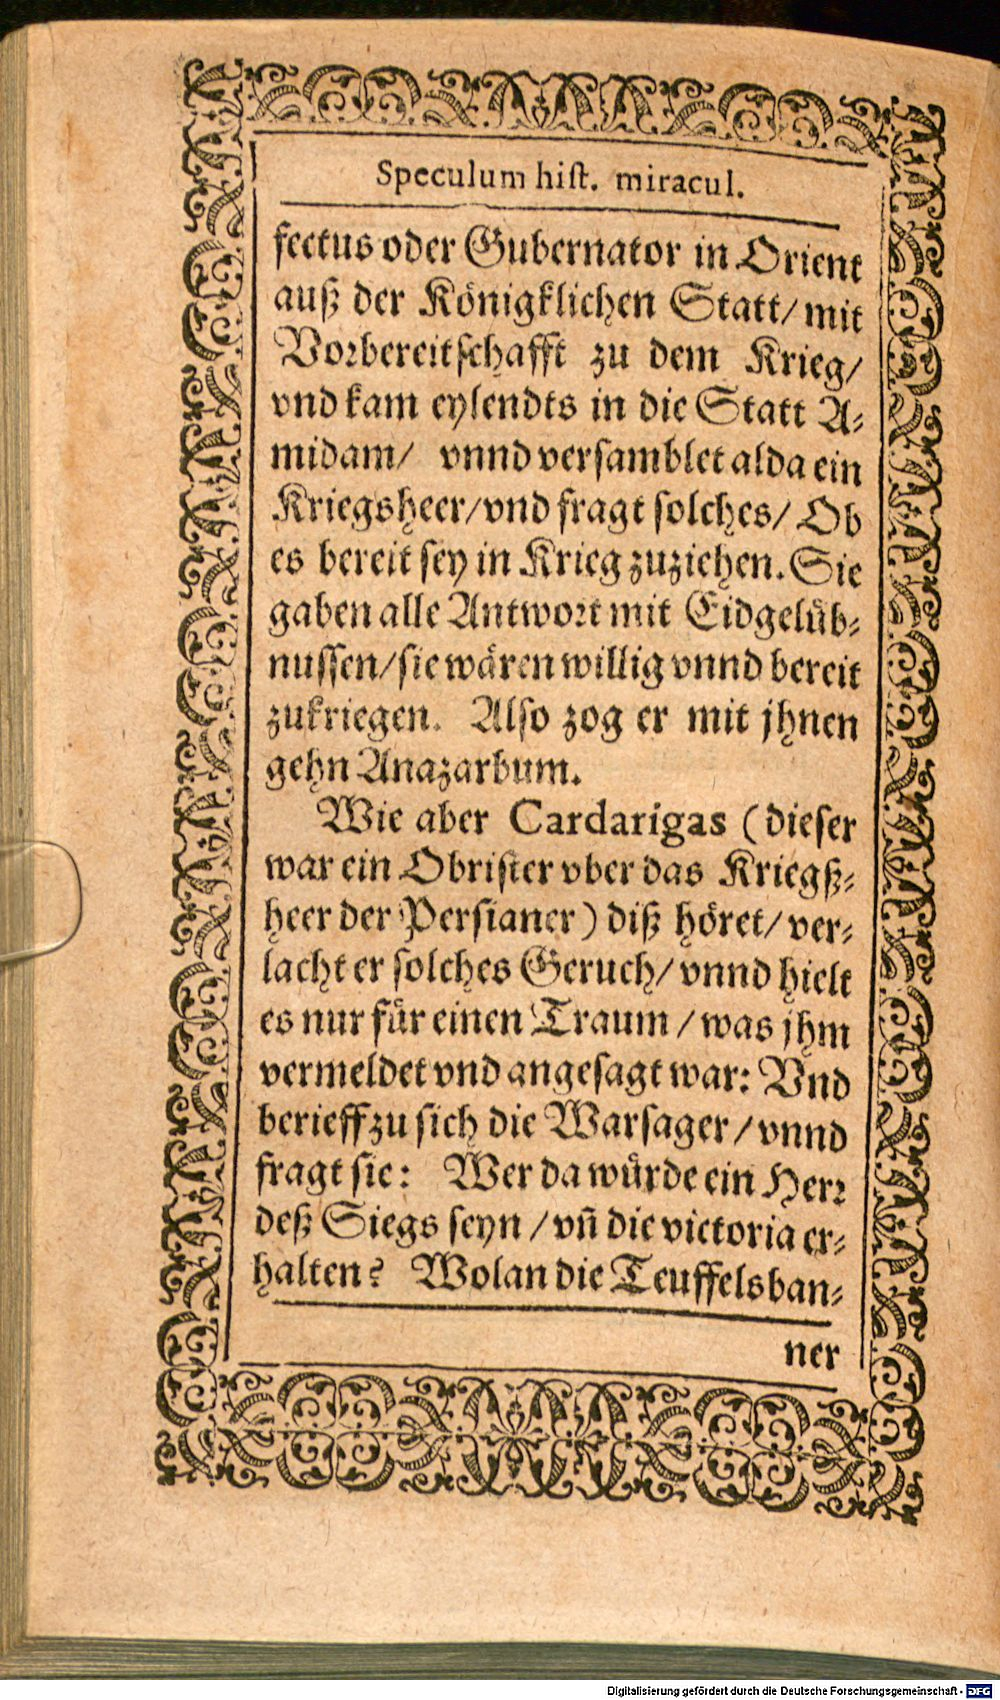 Speculum hist. miracul.
fectus oder Gubernator in Orient
auß der Königklichen Statt/ mit
Vorbereitschafft zu dem Krieg/
vnd kam eylendts in die Statt A-
midam/ vnnd versamblet alda ein
Kriegsheer/ vnd fragt solches/ Ob
es bereit sey in Krieg zuziehen. Sie
gaben alle Antwort mit Eidgelüb-
nussen/ sie wären willig vnnd bereit
zukriegen. Also zog er mit jhnen
gehn Anazarbum.
Wie aber Cardarigas (dieser
war ein Obrister vber das Kriegß-
heer der Persianer) diß höret/ ver-
lacht er solches Geruch/ vnnd hielt
es nur für einen Traum / was jhm
vermeldet vnd angesagt war: Vnd
berieff zu sich die Warsager / vnnd
fragt sie: Wer da würde ein Herr
deß Siegs seyn / vñ die victoria er-
halten? Wolan die Teuffelsban-
ner
Digitalisierung gefördert durch die Deutsche Forschungsgemeinschaft - DFG